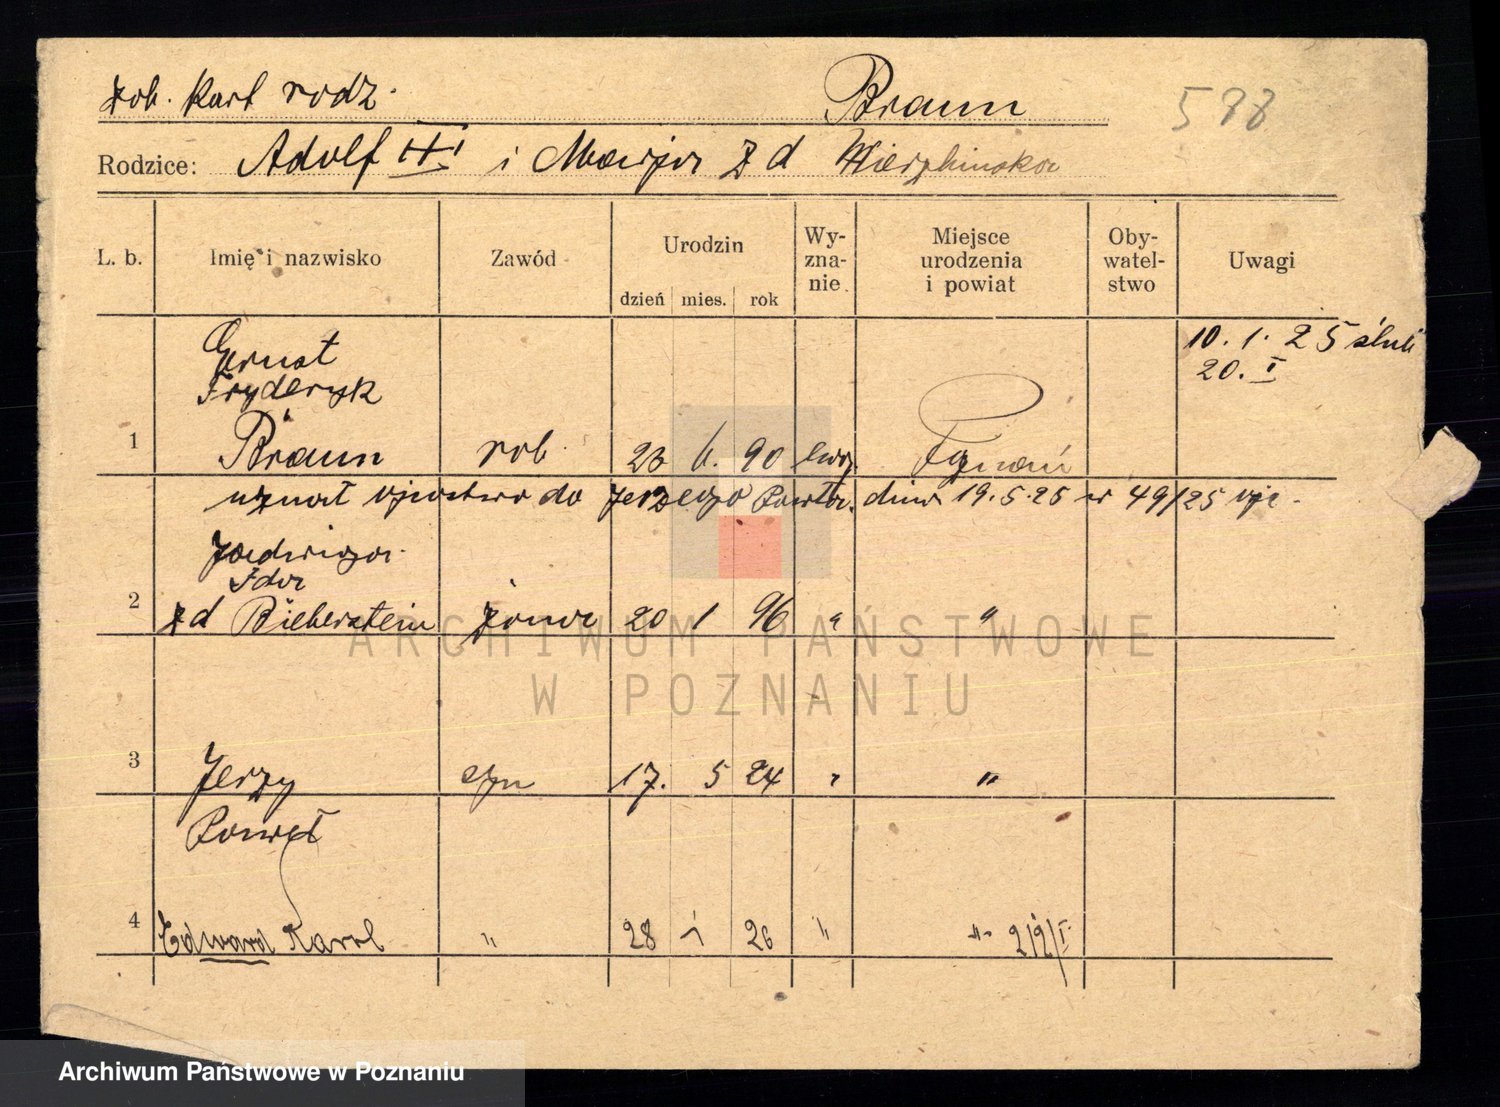 zob. Kart rodz.
Braun
Rodzice: Adolf III i Marja z d Wierzbinska
L. b. Imię i nazwisko Zawód Urodzin dzień mies. rok Wy-zna-nie Miejsce urodzenia i powiat Oby-watel-stwo Uwagi
10. 1. 25 ślub
20. I
Ernst
Fryderyk
1 Braun rob. 23 6. 90 ewg. Poznań
uznał ojcostwo do Jerzego Pawła dnia 19.5.25 nr 49/25
Jadwiga
Ida
2 z d Bieberstein żona 20 1 96 " "
ARCHIWUM PAŃSTWOWE
W POZNANIU
3 Jerzy syn 17. 5 24 " "
Paweł
4 Edward Karol " 28 1 26 " "
Archiwum Państwowe w Poznaniu